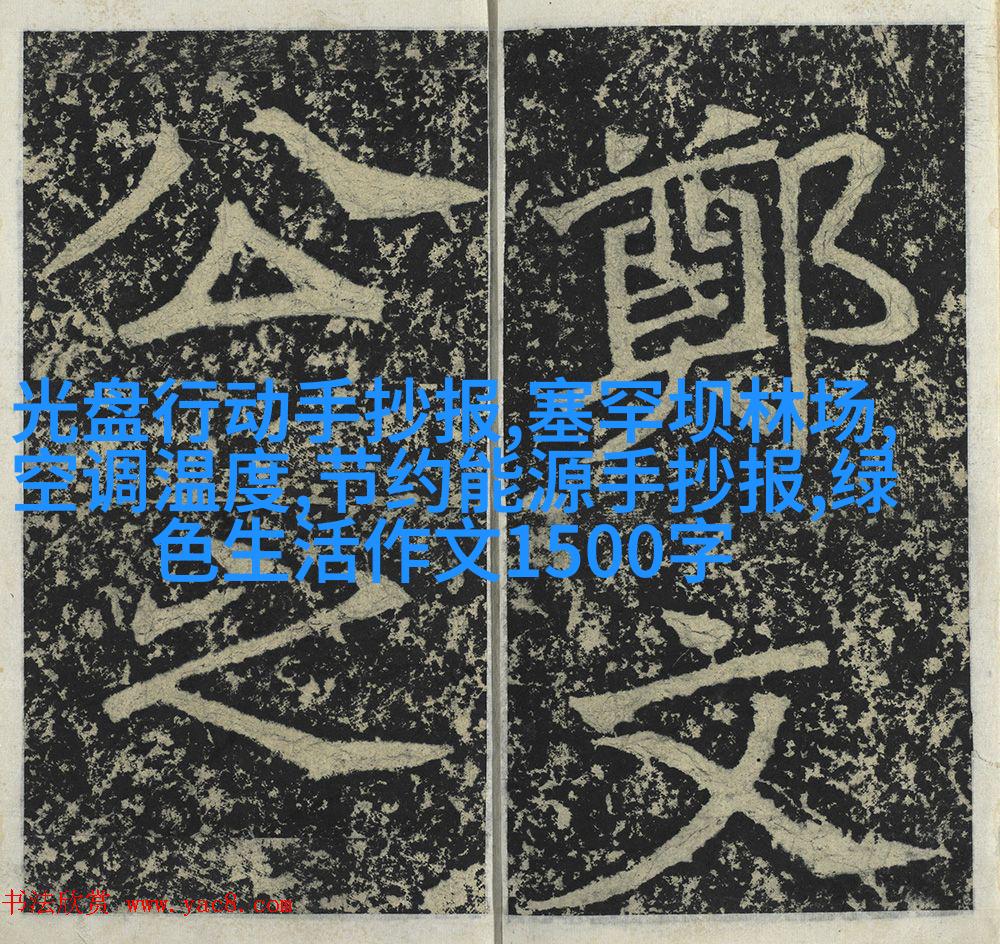 鄭文
公之
光盘行动手抄报,塞罕坝林场,
空调温度,节约能源手抄报,绿
色生活作文1500字
书法欣赏 www.yac8.com